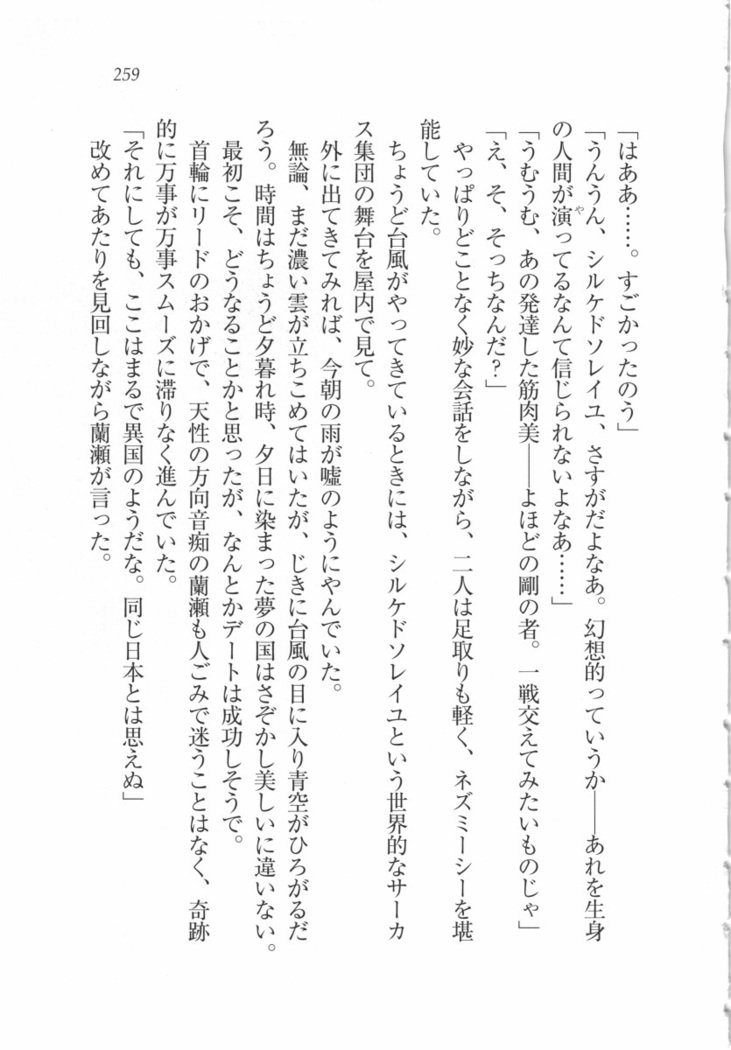 259
「はああ……。すごかったのう」
「うんうん、シルケドソレイユ、さすがだよなあ。幻想的っていうか――あれを生身
の人間が演ってるなんて信じられないよなあ……」
や
「うむうむ、あの発達した筋肉美――よほどの剛の者。一戦交えてみたいものじゃ」
「え、そ、そっちなんだ？」
やっぱりどことなく妙な会話をしながら、二人は足取りも軽く、ネズミーシーを堪
能していた。
ちょうど台風がやってきているときには、シルケドソレイユという世界的なサーカ
ス集団の舞台を屋内で見て。
外に出てきてみれば、今朝の雨が嘘のようにやんでいた。
無論、まだ濃い雲が立ちこめてはいたが、じきに台風の目に入り青空がひろがるだ
ろう。時間はちょうど夕暮れ時、夕日に染まった夢の国はさぞかし美しいに違いない。
最初こそ、どうなることかと思ったが、なんとかデートは成功しそうで。
首輪にリードのおかげで、天性の方向音痴の蘭瀬も人ごみで迷うことはなく、奇跡
的に万事が万事スムーズに滞りなく進んでいた。
「それにしても、ここはまるで異国のようだな。同じ日本とは思えぬ」
改めてあたりを見回しながら蘭瀬が言った。